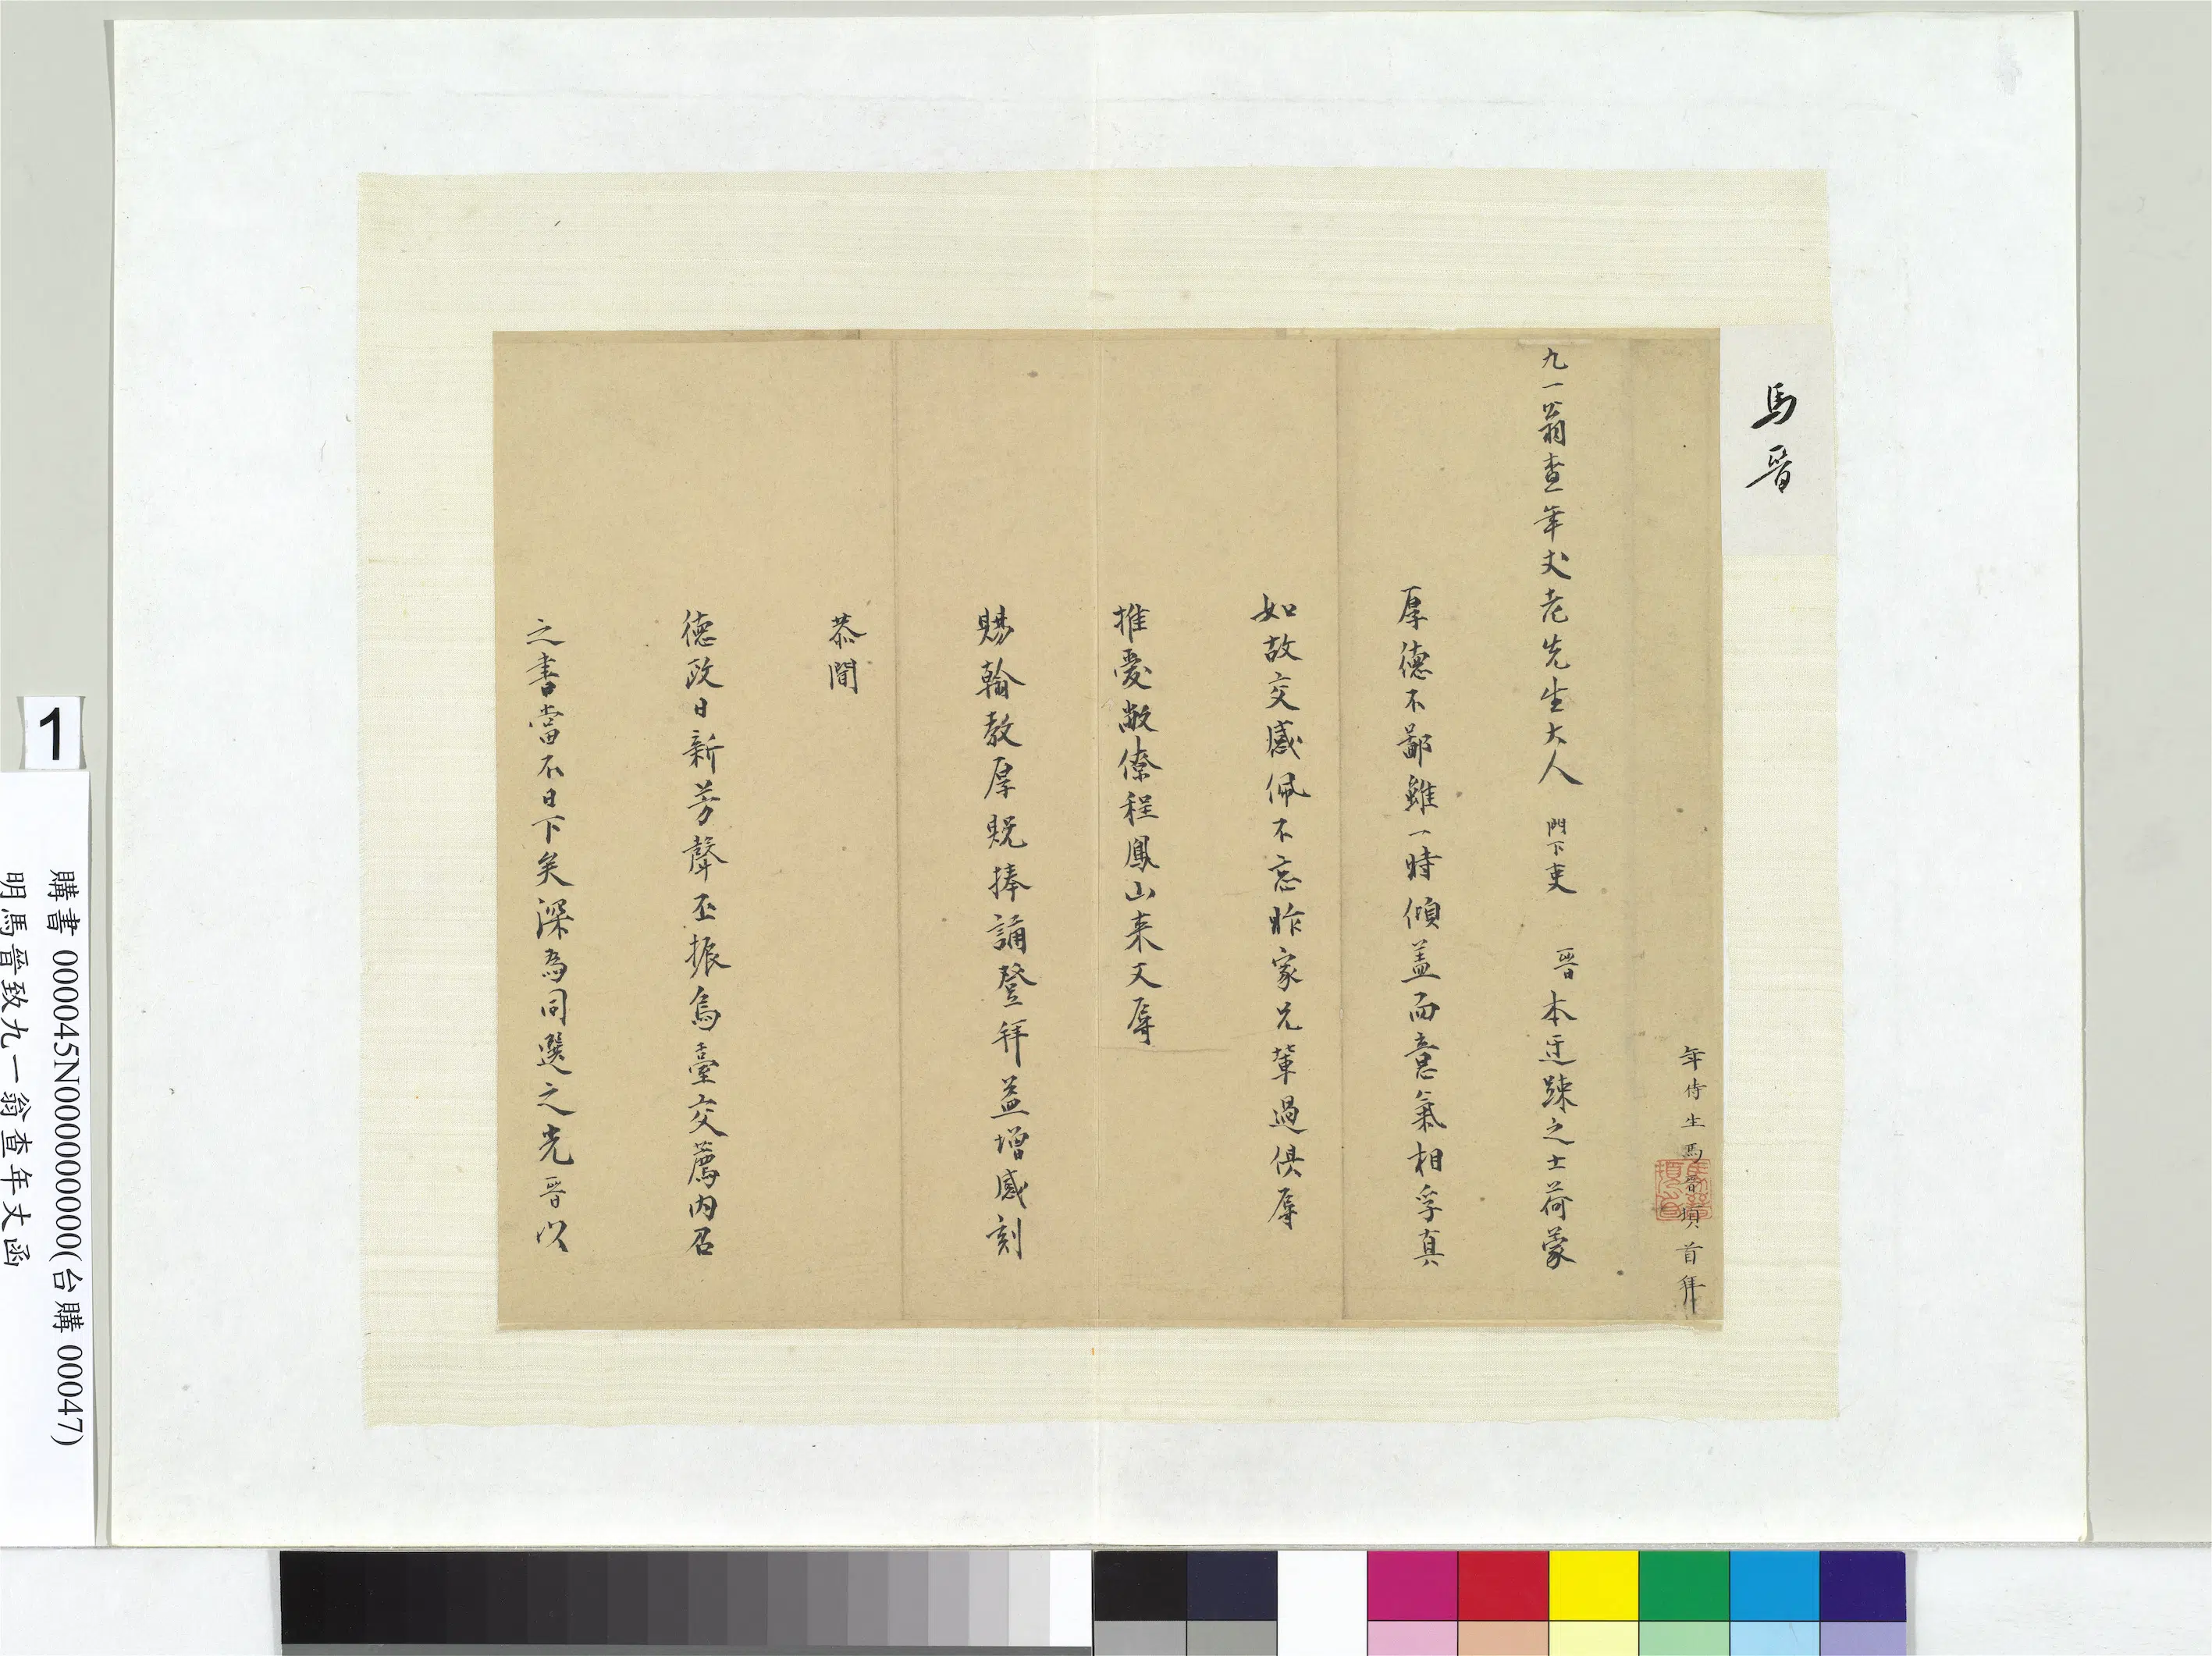 馬晉
年侍生馬晉頓首拜
九一翁查年丈老先生大人 門下吏 晉本迂踈之士荷蒙
厚德不鄙雖一時傾盖而意氣相孚真
如故交感佩不忘昨家兄輩過俱辱
推愛敝僚程鳳山來又辱
賜翰教厚貺捧誦登拜益增感刻
恭聞
德政日新芳聲丕振烏臺交薦內召
之書當不日下矣深為同選之光晉以
1
購書 000045N000000000(台購 00047)
明馬晉致九一翁查年丈函